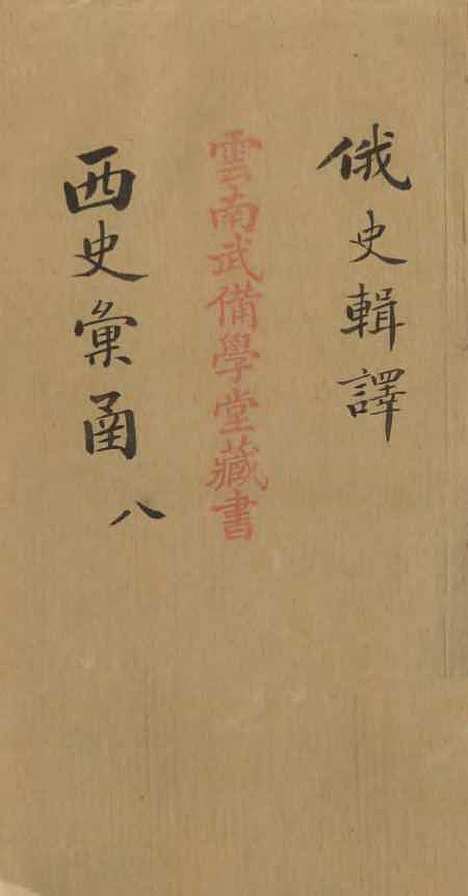 俄史輯譯
雲南武備學堂藏書
西史彙函 八